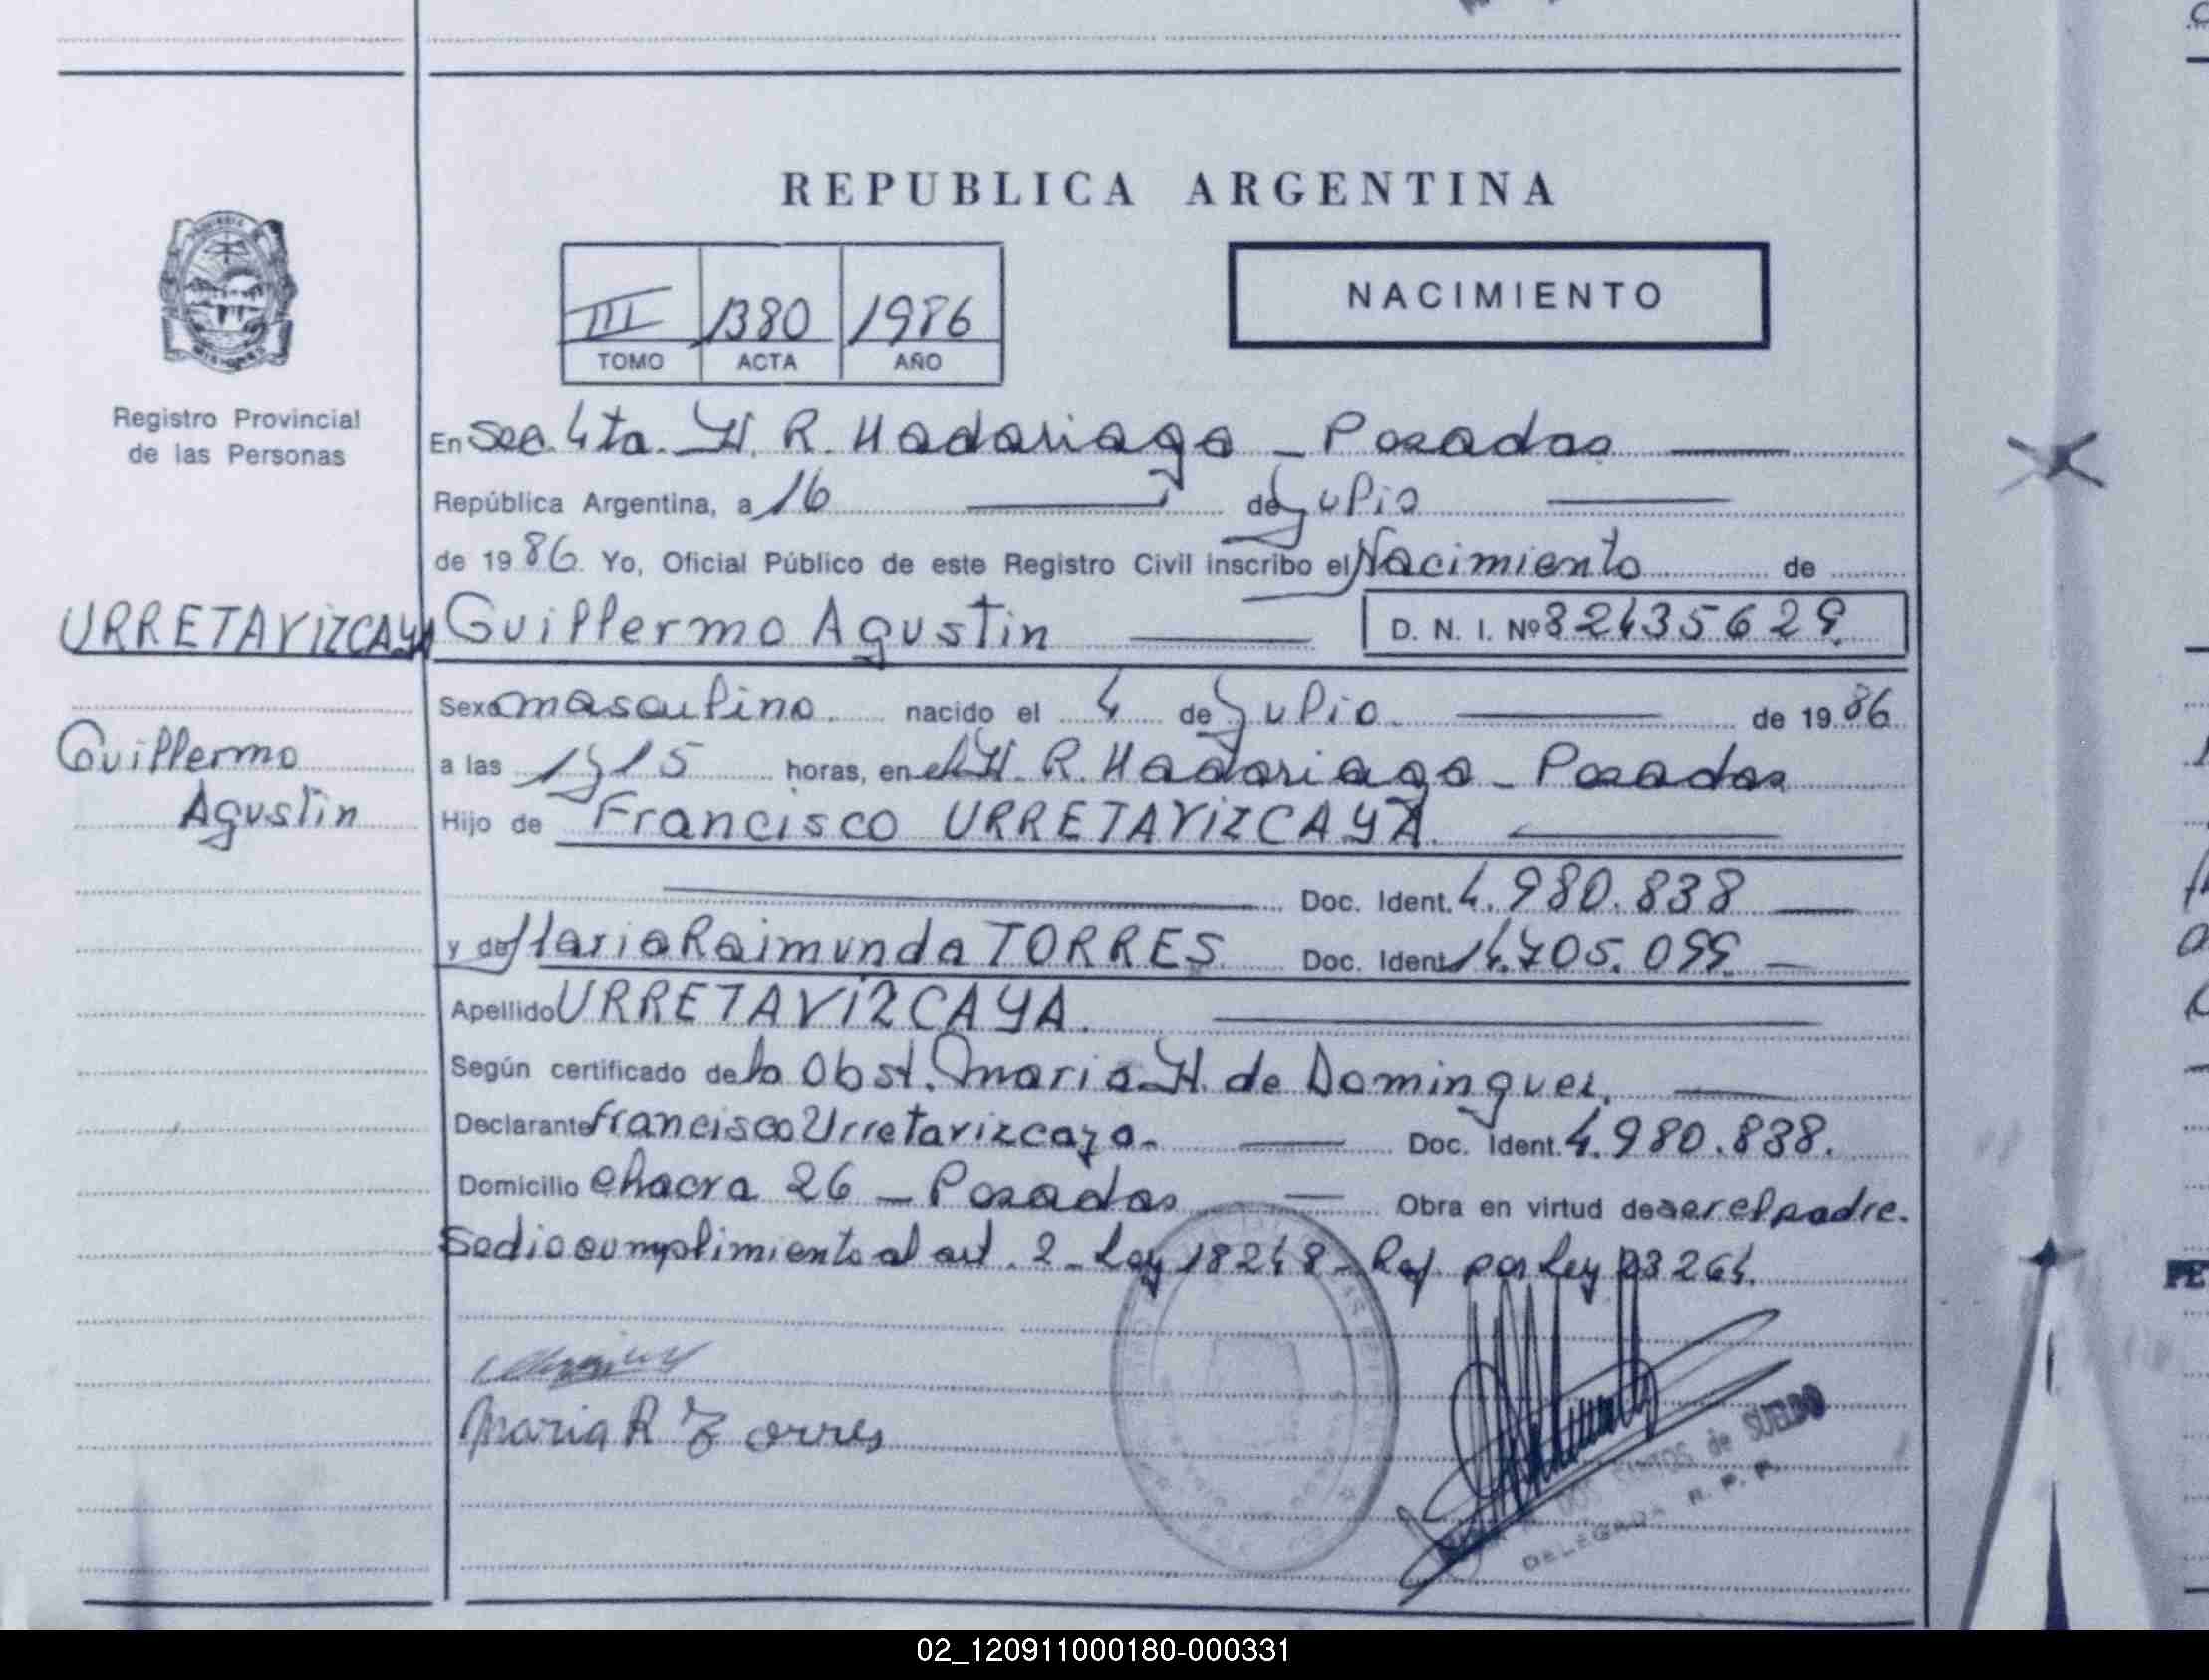 REPUBLICA ARGENTINA
NACIMIENTO
III 1380 1986
TOMO ACTA AÑO
Registro Provincial
de las Personas
En Sec. 4ta. H. R. Madariaga - Posadas
República Argentina, a 16 de Julio
de 1986. Yo, Oficial Público de este Registro Civil inscribo el Nacimiento de
URRETAVIZCAYA
Guillermo Agustin D. N. I. Nº
Guillermo
Agustin
Sexo masculino. nacido el 4 de Julio de 1986
a las horas, en el H. R. Madariaga - Posadas
Hijo de Francisco URRETAVIZCAYA.
Doc. Ident. 4.980.838
y de Maria Raimunda TORRES Doc. Ident. 14.705.099
Apellido URRETAVIZCAYA.
Según certificado de la Obst. Maria H. de Dominguez.
Declarante Francisco Urretavizcaya Doc. Ident. 4.980.838.
Domicilio chacra 26 - Posadas Obra en virtud de ser el padre.
Se dio cumplimiento al art. 2 - Ley 18248 - Ref. por Ley 23264.
Maria R Torres
de SUELDO
DELEGADA R. P. P.
02_120911000180-000331